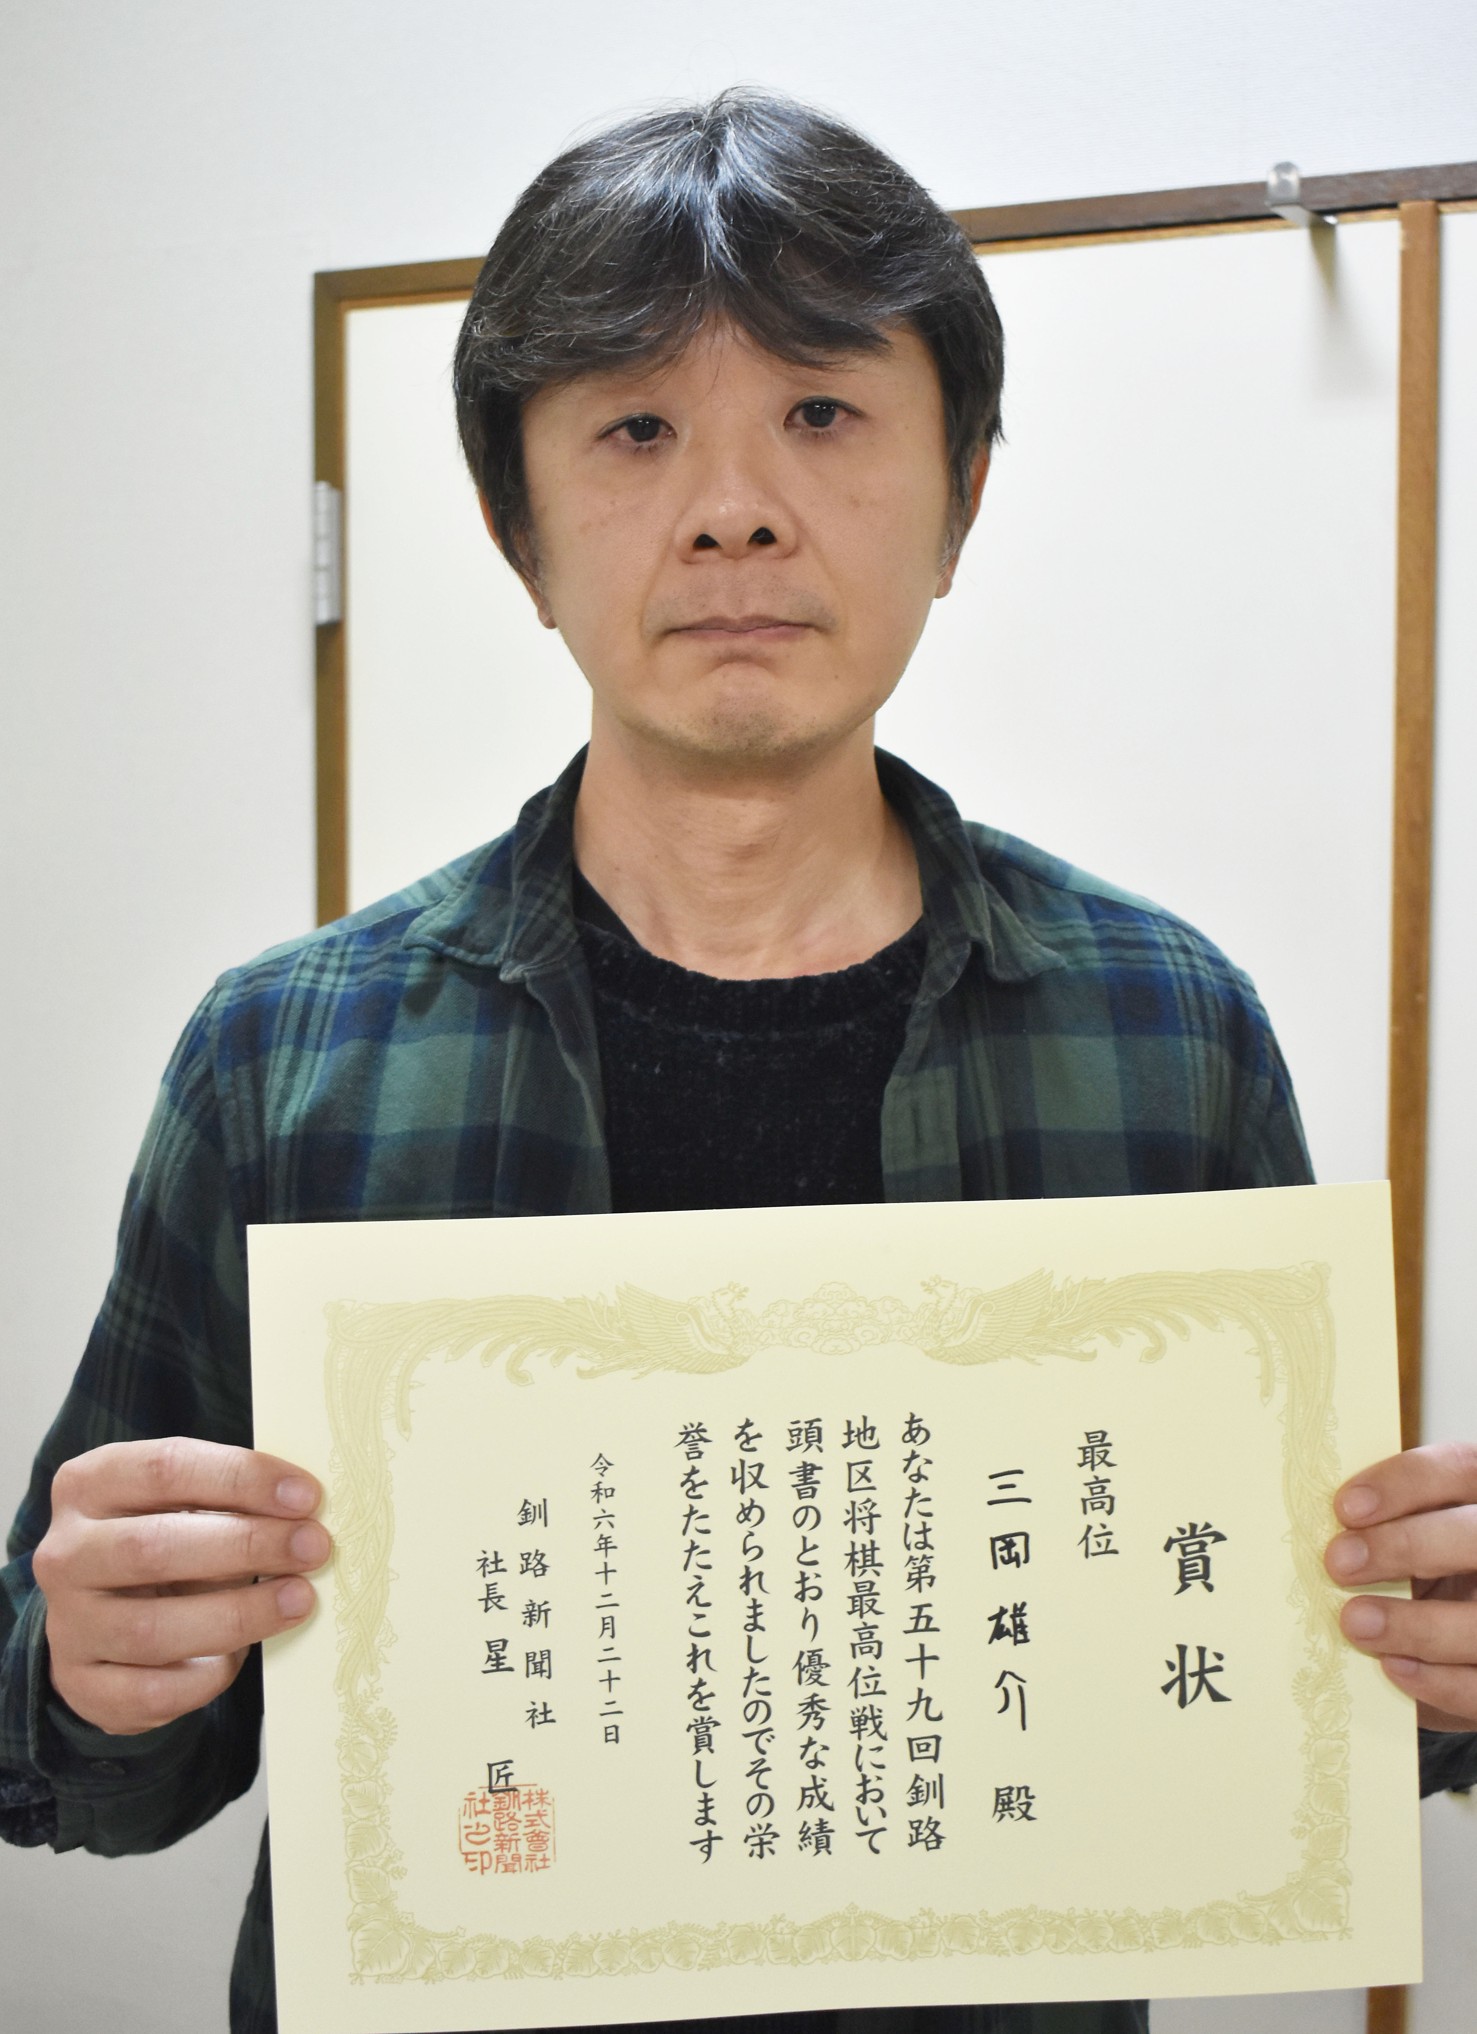 賞状
最高位
三岡雄介殿
あなたは第五十九回釧路
地区将棋最高位戦において
頭書のとおり優秀な成績
を収められましたのでその栄
誉をたたえこれを賞します
令和六年十二月二十二日
釧路新聞社
社長 星 匠
株式會社
釧路新聞
社之印